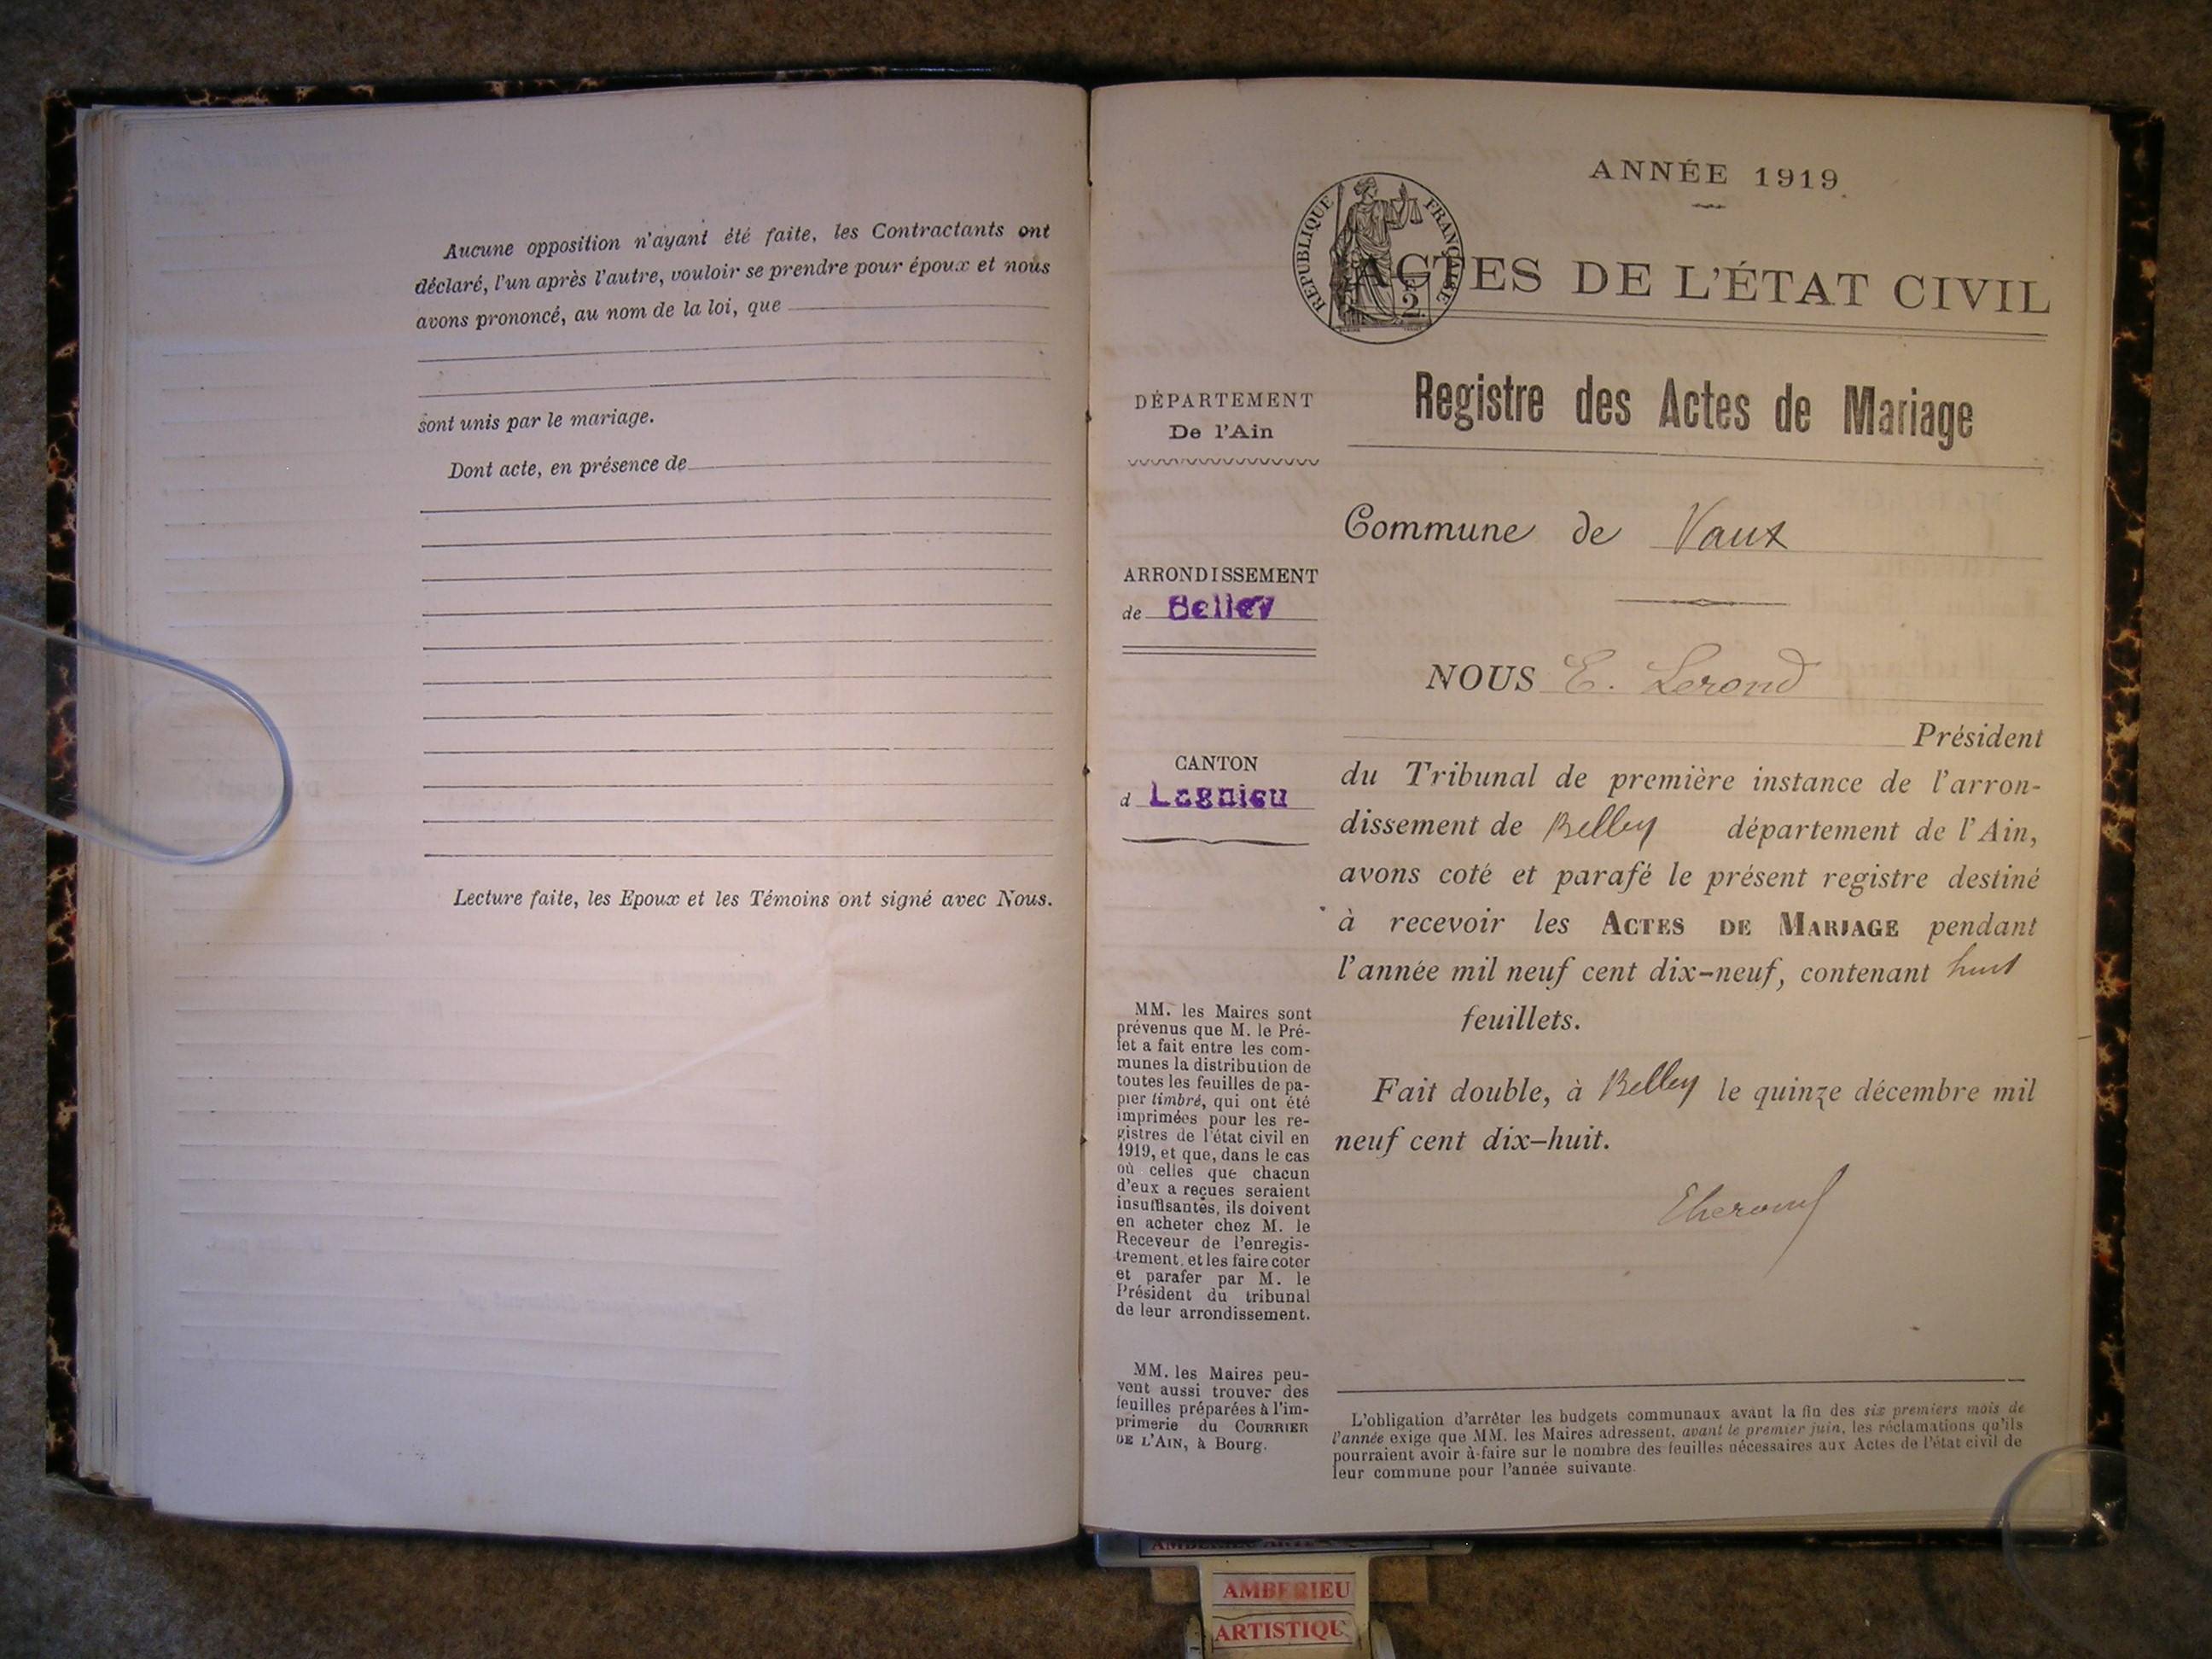 Aucune opposition n'ayant été faite, les Contractants ont
déclaré, l'un après l'autre, vouloir se prendre pour époux et nous
avons prononcé, au nom de la loi, que
sont unis par le mariage.
Dont acte, en présence de
Lecture faite, les Epoux et les Témoins ont signé avec Nous.
ANNÉE 1919
RÉPUBLIQUE FRANÇAISE
2
ACTES DE L'ÉTAT CIVIL
Registre des Actes de Mariage
DÉPARTEMENT
De l'Ain
ARRONDISSEMENT
de Belley
CANTON
d Lagnieu
MM. les Maires sont
prévenus que M. le Pré-
fet a fait entre les com-
munes la distribution de
toutes les feuilles de pa-
pier timbré, qui ont été
imprimées pour les re-
gistres de l'état civil en
1919, et que, dans le cas
où celles que chacun
d'eux a reçues seraient
insuffisantes, ils doivent
en acheter chez M. le
Receveur de l'enregis-
trement, et les faire coter
et parafer par M. le
Président du tribunal
de leur arrondissement.
MM. les Maires peu-
vent aussi trouver des
feuilles préparées à l'im-
primerie du COURRIER
DE L'AIN, à Bourg.
Commune de Vaux
NOUS E. Lerond
Président
du Tribunal de première instance de l'arron-
dissement de Belley département de l'Ain,
avons coté et parafé le présent registre destiné
à recevoir les ACTES DE MARIAGE pendant
l'année mil neuf cent dix-neuf, contenant huit
feuillets.
Fait double, à Belley le quinze décembre mil
neuf cent dix-huit.
ELerond
L'obligation d'arrêter les budgets communaux avant la fin des six premiers mois de
l'année exige que MM. les Maires adressent, avant le premier juin, les réclamations qu'ils
pourraient avoir à-faire sur le nombre des feuilles nécessaires aux Actes de l'état civil de
leur commune pour l'année suivante.
AMBERIEU
ARTISTIQU